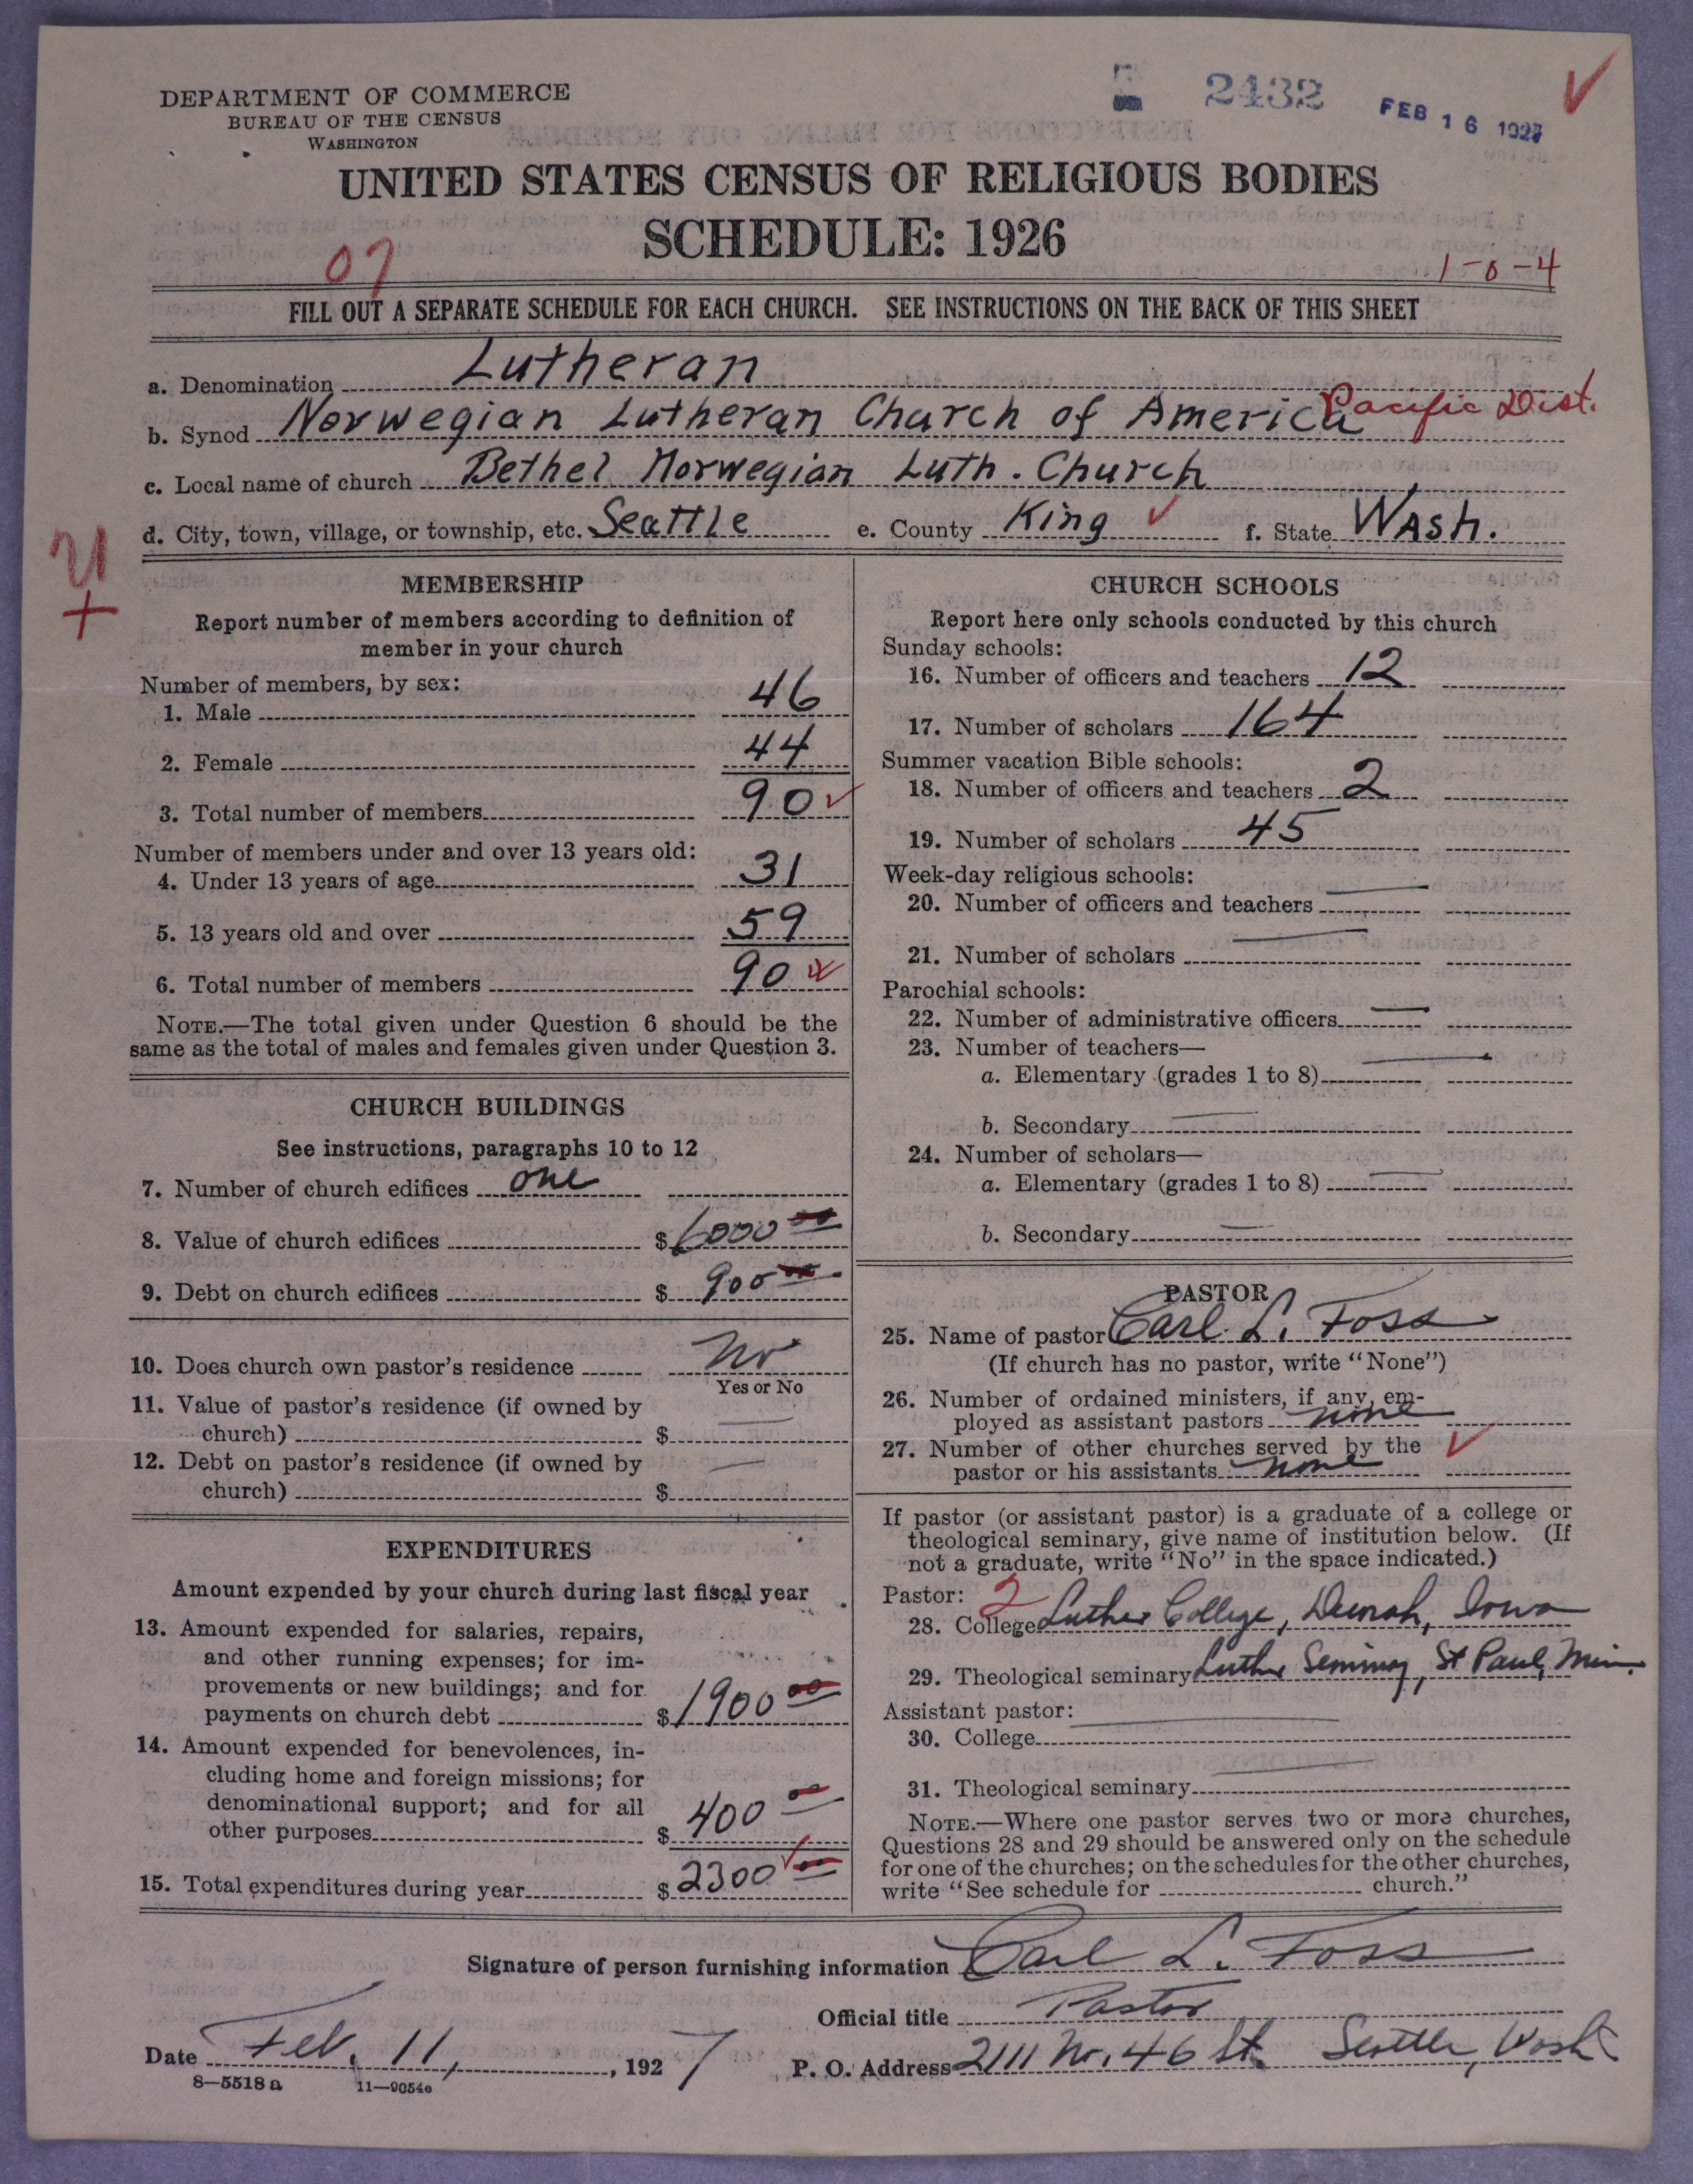 DEPARTMENT OF COMMERCE
BUREAU OF THE CENSUS
WASHINGTON
2432
FEB 16 1927
UNITED STATES CENSUS OF RELIGIOUS BODIES
SCHEDULE: 1926
07
1-0-4
FILL OUT A SEPARATE SCHEDULE FOR EACH CHURCH. SEE INSTRUCTIONS ON THE BACK OF THIS SHEET
a. Denomination Lutheran
b. Synod Norwegian Lutheran Church of America Pacific Dist.
c. Local name of church Bethel Norwegian Luth. Church
d. City, town, village, or township, etc. Seattle e. County King f. State Wash.
MEMBERSHIP
Report number of members according to definition of
member in your church
Number of members, by sex:
1. Male 46
2. Female 44
3. Total number of members 90
Number of members under and over 13 years old:
4. Under 13 years of age 31
5. 13 years old and over 59
6. Total number of members 90
NOTE.—The total given under Question 6 should be the
same as the total of males and females given under Question 3.
CHURCH BUILDINGS
See instructions, paragraphs 10 to 12
7. Number of church edifices one
8. Value of church edifices $ 6000 00
9. Debt on church edifices $ 900 00
10. Does church own pastor's residence No
Yes or No
11. Value of pastor's residence (if owned by
church) $ —
12. Debt on pastor's residence (if owned by
church) $ —
EXPENDITURES
Amount expended by your church during last fiscal year
13. Amount expended for salaries, repairs,
and other running expenses; for im-
provements or new buildings; and for
payments on church debt $ 1900 00
14. Amount expended for benevolences, in-
cluding home and foreign missions; for
denominational support; and for all
other purposes $ 400 00
15. Total expenditures during year $ 2300 00
CHURCH SCHOOLS
Report here only schools conducted by this church
Sunday schools:
16. Number of officers and teachers 12
17. Number of scholars 164
Summer vacation Bible schools:
18. Number of officers and teachers 2
19. Number of scholars 45
Week-day religious schools:
20. Number of officers and teachers —
21. Number of scholars —
Parochial schools:
22. Number of administrative officers —
23. Number of teachers—
a. Elementary (grades 1 to 8) —
b. Secondary —
24. Number of scholars—
a. Elementary (grades 1 to 8) —
b. Secondary —
PASTOR
25. Name of pastor Carl L. Foss
(If church has no pastor, write "None")
26. Number of ordained ministers, if any, em-
ployed as assistant pastors none
27. Number of other churches served by the
pastor or his assistants none
If pastor (or assistant pastor) is a graduate of a college or
theological seminary, give name of institution below. (If
not a graduate, write "No" in the space indicated.)
Pastor: 2
28. College Luther College, Decorah, Iowa
29. Theological seminary Luther Seminary, St Paul, Minn.
Assistant pastor: —
30. College
31. Theological seminary —
NOTE.—Where one pastor serves two or more churches,
Questions 28 and 29 should be answered only on the schedule
for one of the churches; on the schedules for the other churches,
write "See schedule for church."
Signature of person furnishing information Carl L. Foss
Official title Pastor
Date Feb. 11, 1927 P. O. Address 2111 N. 46 St. Seattle, Wash
8—5518 a 11—9054e